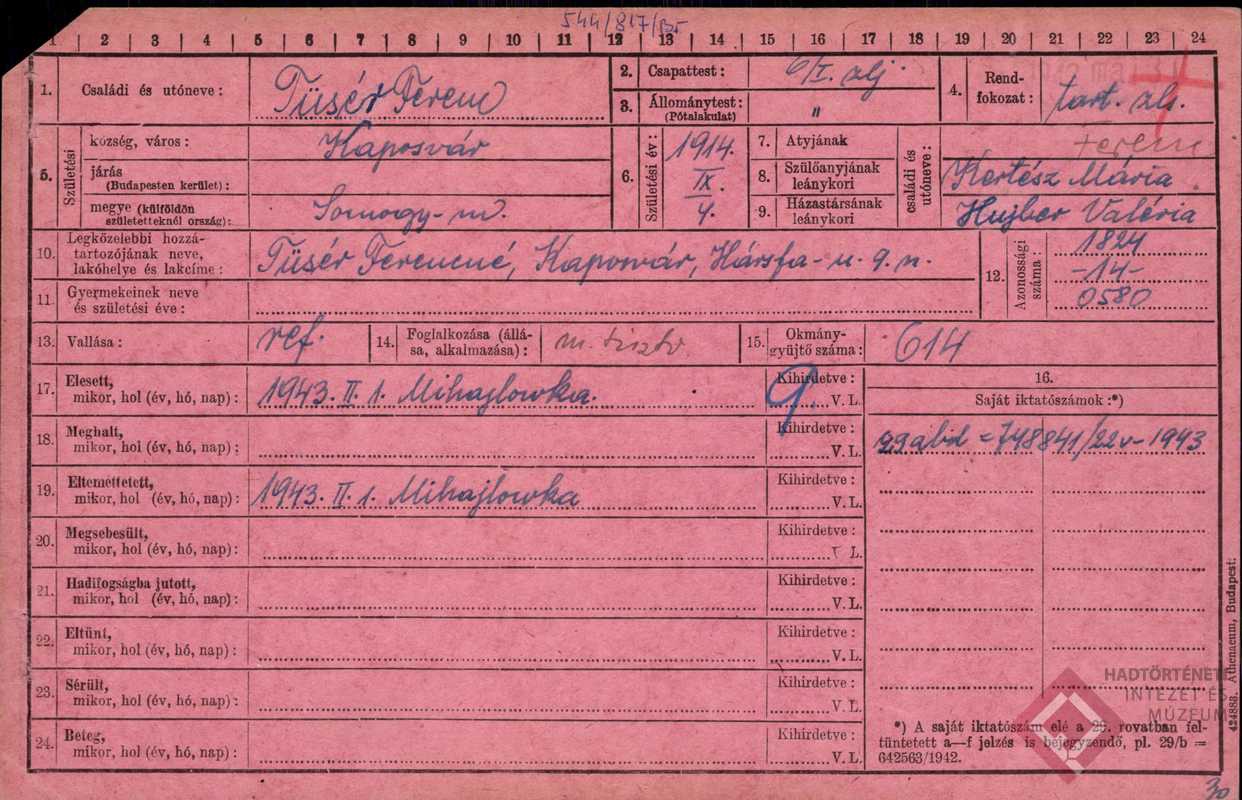 544/817/Bf
1 | 2 | 3 | 4 | 5 | 6 | 7 | 8 | 9 | 10 | 11 | 12 | 13 | 14 | 15 | 16 | 17 | 18 | 19 | 20 | 21 | 22 | 23 | 24
1. Családi és utóneve: Tüsér Ferenc
2. Csapattest: 6/I. zlj.
3. Állománytest: (Pótalakulat) "
4. Rendfokozat: tart. zls.
5. Születési
község, város: Kaposvár
járás (Budapesten kerület):
megye (külföldön születetteknél ország): Somogy-m.
6. Születési év: 1914. IX. 4.
családi és utóneve:
7. Atyjának Ferenc
8. Szülőanyjának leánykori Kertész Mária
9. Házastársának leánykori Hujber Valéria
10. Legközelebbi hozzátartozójának neve, lakóhelye és lakcíme: Tüsér Ferencné, Kaposvár, Hársfa-u. 9. n.
11. Gyermekeinek neve és születési éve:
12. Azonossági száma: 1824
-14-
0580
13. Vallása: ref.
14. Foglalkozása (állása, alkalmazása): m. tisztv.
15. Okmánygyüjtő száma: 614
16.
Saját iktatószámok:*)
29abd = 748841/22v-1943
17. Elesett, mikor, hol (év, hó, nap): 1943. II. 1. Mihajlowka. Kihirdetve: 9. V. L.
18. Meghalt, mikor, hol (év, hó, nap): Kihirdetve: V. L.
19. Eltemettetett, mikor, hol (év, hó, nap): 1943. II. 1. Mihajlowka Kihirdetve: V. L.
20. Megsebesült, mikor, hol (év, hó, nap): Kihirdetve: V. L.
21. Hadifogságba jutott, mikor, hol (év, hó, nap): Kihirdetve: V. L.
22. Eltünt, mikor, hol (év, hó, nap): Kihirdetve: V. L.
23. Sérült, mikor, hol (év, hó, nap): Kihirdetve: V. L.
24. Beteg, mikor, hol (év, hó, nap): Kihirdetve: V. L.
*) A saját iktatószám elé a 29. rovatban feltüntetett a—f jelzés is bejegyzendő, pl. 29/b = 642563/1942.
424888. Athenaeum, Budapest.
HADTÖRTÉNETI
INTÉZET ÉS
MÚZEUM
30